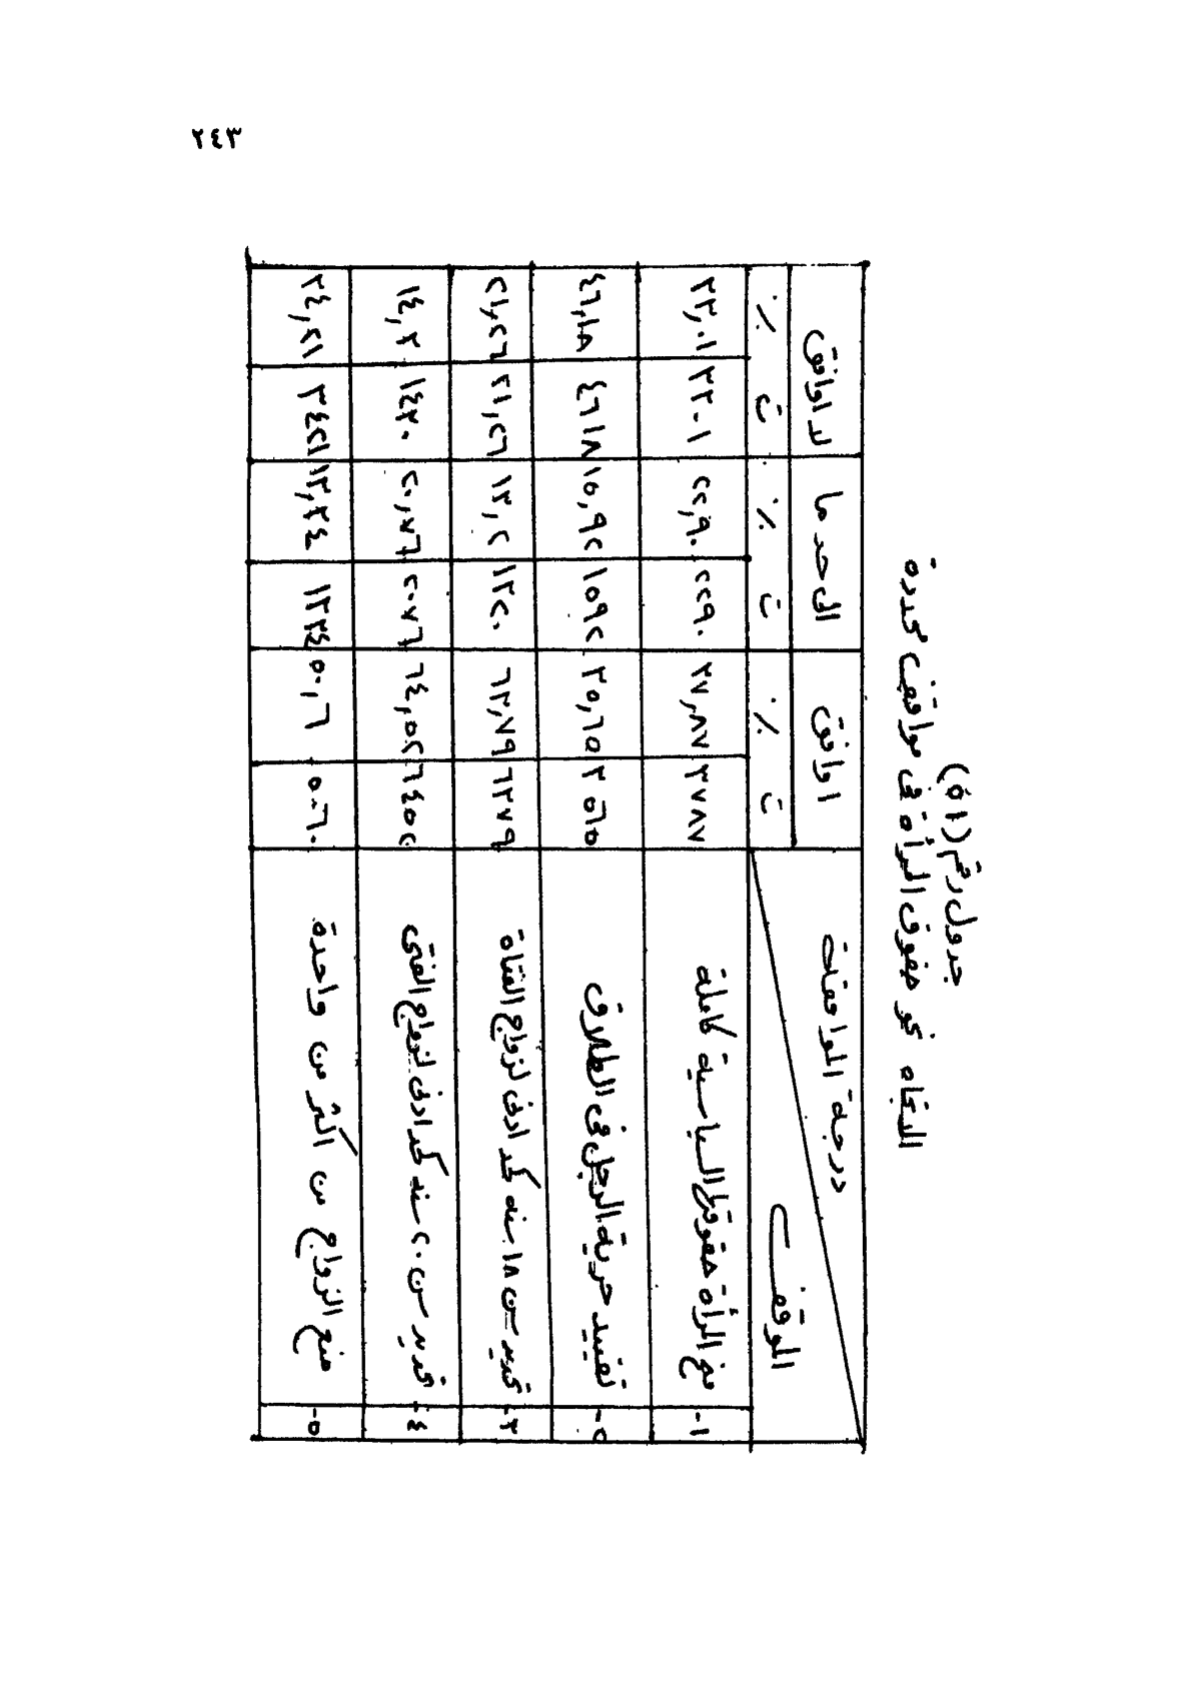 ٢٤٣
جدول رقم (٥١)
الاتجاه نحو حقوق المرأة فى مواقف محددة
درجة الموافقة اوافق الى حد ما لا اوافق
الموقف ت ٪ ت ٪ ت ٪
١- منح المرأة حقوقها السياسية كاملة ٣٧٨٧ ٣٧,٨٧ ٢٢٩٠ ٢٢,٩٠ ٣٣٠١ ٣٣,٠١
٢- تقييد حرية الرجل فى الطلاق ٣٥٦٥ ٣٥,٦٥ ١٥٩٢ ١٥,٩٢ ٤٦١٨ ٤٦,١٨
٣- تحديد سن ١٨ سنه كحد ادنى لزواج الفتاة ٦٣٧٩ ٦٣,٧٩ ١٣٢٠ ١٣,٢ ٢١,٢٦ ٢١,٢٦
٤- تحديد سن ٢٠ سنه كحد ادنى لزواج الفتى ٦٤٥٢ ٦٤,٥٢ ٢٠٧٦ ٢٠,٧٦ ١٤٣٠ ١٤,٣
٥- منع الزواج من اكثر من واحدة ٥٠٦٠ ٥٠,٦ ١٣٣٤ ١٣,٣٤ ٣٤٢١ ٣٤,٢١